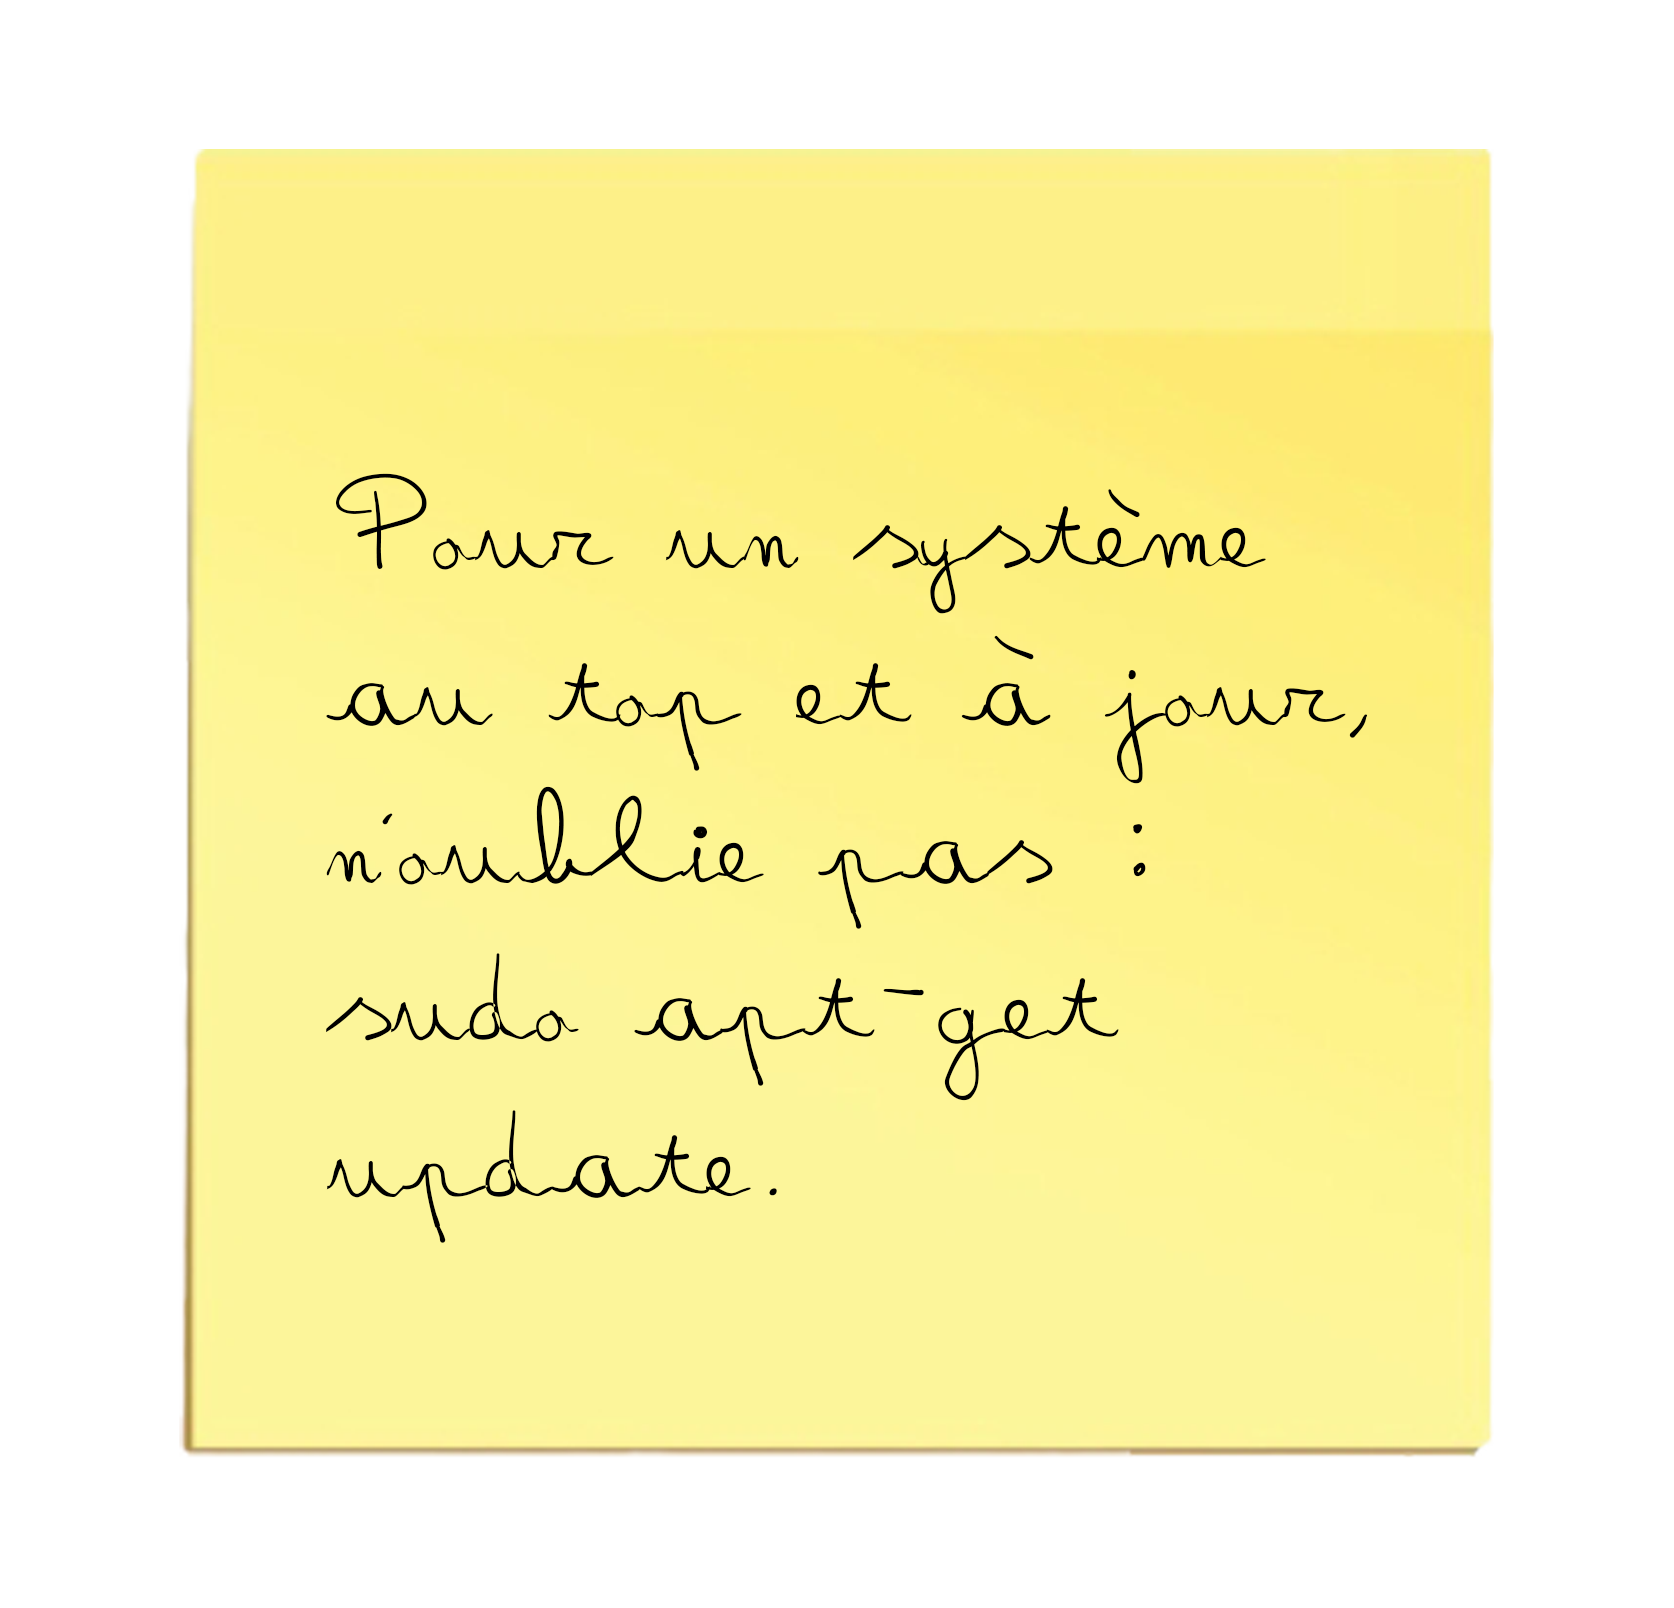 Pour un système
au top et à jour,
n'oublie pas :
sudo apt-get
update.